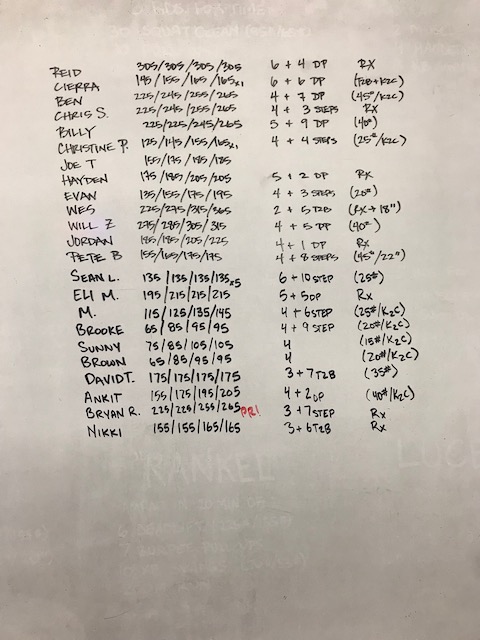 REID 305/305/305/305 6 + 4 DP RX
CIERRA 145/155/165/165x1 6 + 6 DP (T2B+K2C)
BEN 225/245/255/265 4 + 7 DP (45#/K2C)
CHRIS S. 225/245/255/265 4 + 3 STEPS RX
BILLY 225/225/245/265 5 + 9 DP (40#)
CHRISTINE P. 125/145/155/165x1 4 + 4 STEPS (25#/K2C)
JOE T 155/175/185/185
HAYDEN 175/185/205/205 5 + 2 DP RX
EVAN 135/155/175/195 4 + 3 STEPS (20#)
WES 225/275/315/365 2 + 5 T2B (RX + 18")
WILL Z 275/285/305/315 4 + 5 DP (40#)
JORDAN 185/185/205/225 4 + 1 DP RX
PETE B 155/165/175/175 4 + 8 STEPS (45#/22")
SEAN L. 135/135/135/135x5 6 + 10 STEP (25#)
ELI M. 195/215/215/215 5 + 5 DP RX
M. 115/125/135/145 4 + 6 STEP (25#/K2C)
BROOKE 65/85/95/95 4 + 9 STEP (20#/K2C)
SUNNY 75/85/105/105 4 (15#/K2C)
BROWN 65/85/95/95 4 (20#/K2C)
DAVID T. 175/175/175/175 3 + 7 T2B (35#)
ANKIT 155/175/195/205 4 + 2 DP (40#/K2C)
BRYAN R. 225/225/255/265 PR! 3 + 7 STEP Rx
NIKKI 155/155/165/165 3 + 6 T2B Rx
"RANKEL